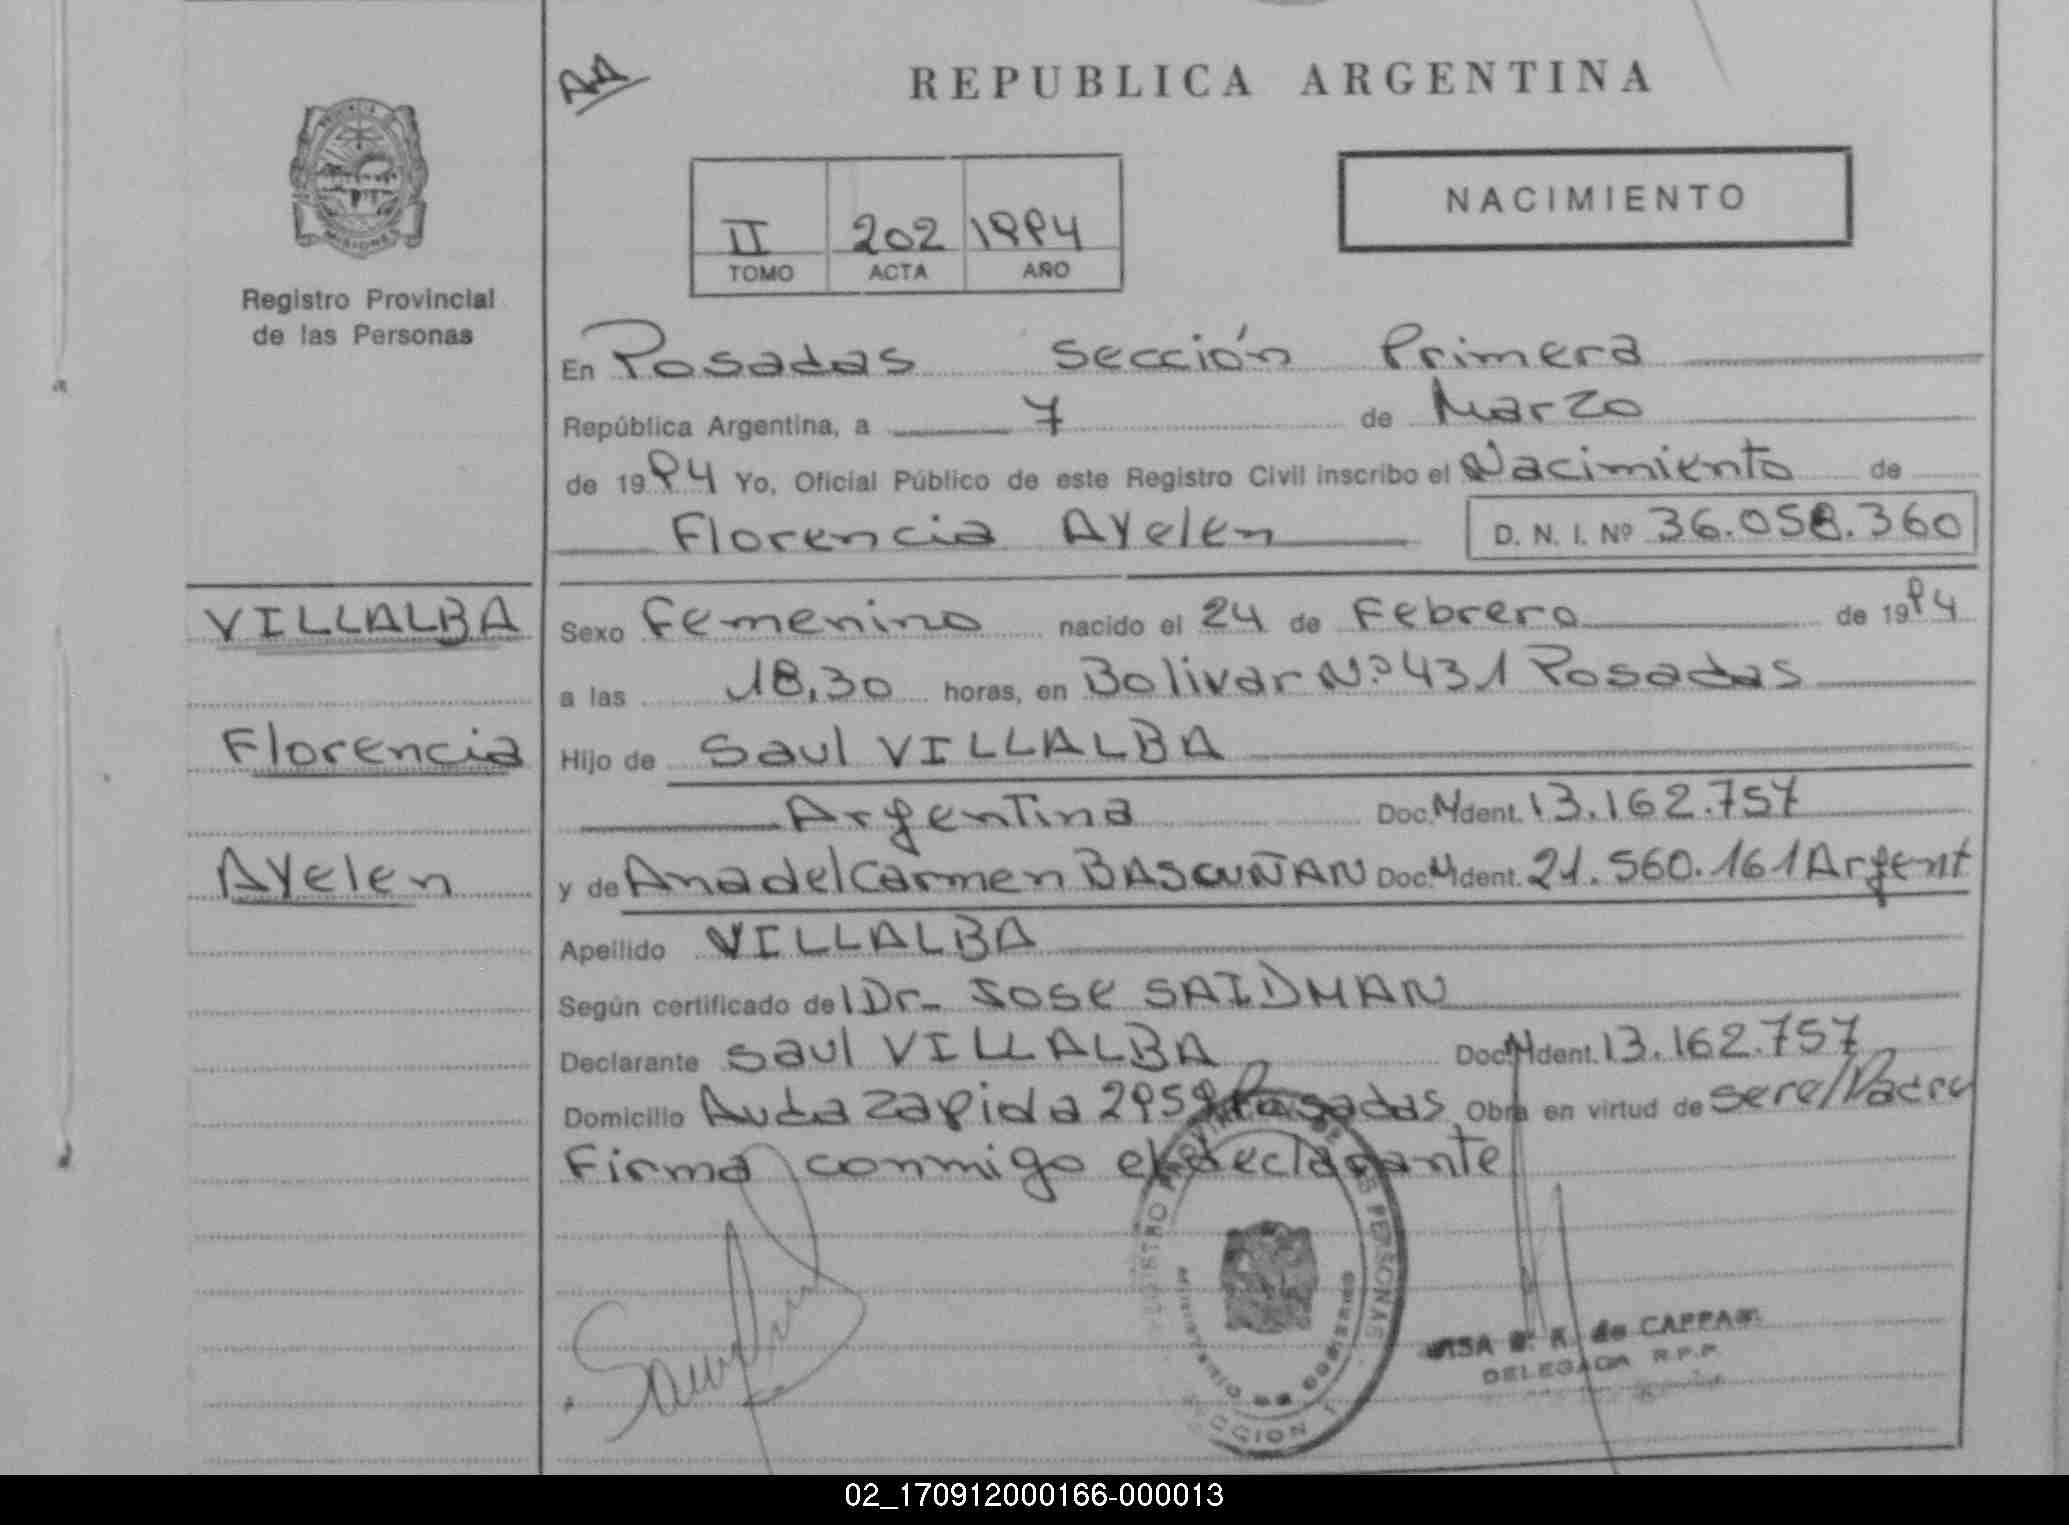 AA
REPUBLICA ARGENTINA
NACIMIENTO
II 202 1994
TOMO ACTA AÑO
PROVINCIA
MISIONES
Registro Provincial
de las Personas
En Posadas Sección Primera
República Argentina, a 7 de Marzo
de 1994 Yo, Oficial Público de este Registro Civil inscribo el Nacimiento de
Florencia Ayelen D. N. I. Nº 36.058.360
VILLALBA
Florencia
Ayelen
Sexo Femenino nacido el 24 de Febrero de 1994
a las 18,30 horas, en Bolivar Nº 431 Posadas
Hijo de Saul VILLALBA
Argentina Doc. Ident. 13.162.757
y de Ana del Carmen BASCUÑAN Doc. Ident. 21.560.161 Argent
Apellido VILLALBA
Según certificado del Dr. JOSE SAIDMAN
Declarante Saul VILLALBA Doc. Ident. 13.162.757
Domicilio Avda Zapiola Posadas Obra en virtud de ser el Padre
Firma conmigo el declarante
REGISTRO PROVINCIAL DE LAS PERSONAS
MINISTERIO DE GOBIERNO
SECCION 1
de CAPPA
DELEGADA R.P.P.
02_170912000166-000013